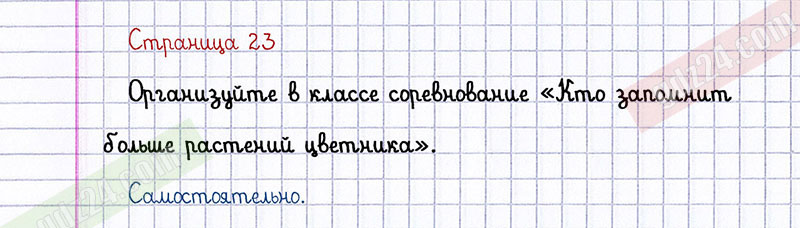 Страница 23
Организуйте в классе соревнование «Кто запомнит
больше растений цветника».
Самостоятельно.